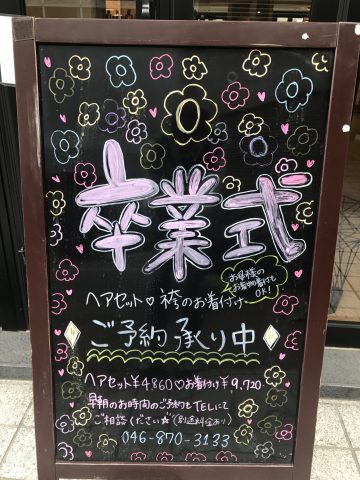 卒業式
ヘアセット♡袴のお着付け
お母様の
お着物着付も
OK!
ご予約承り中
ヘアセット¥4860♡お着付け¥9,720-
早朝のお時間のご予約もTELにて
ご相談ください☆(別途料金あり)
046-870-3133